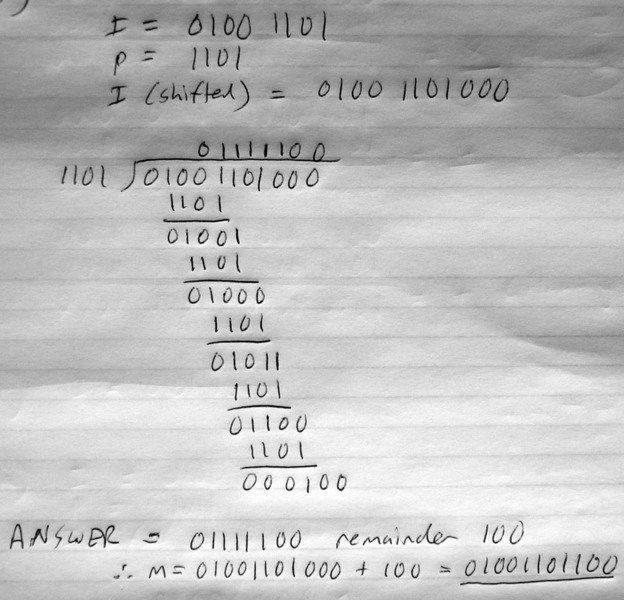 I = 0100 1101
P = 1101
I (shifted) = 0100 1101000
01111100
1101 01001101000
1101
01001
1101
01000
1101
01011
1101
01100
1101
000100
ANSWER = 01111100 remainder 100
∴ M = 01001101000 + 100 = 01001101100